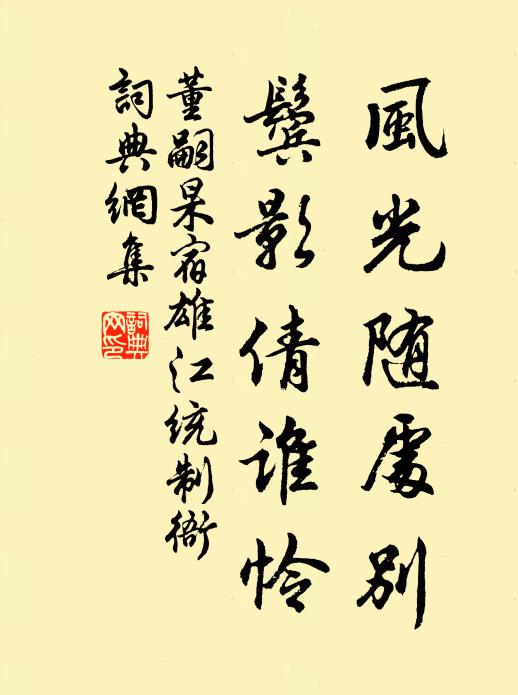 風光随處別
鬢影倩誰怜
董嗣杲宿雄江統制衙
詞典網集
詞典
网印